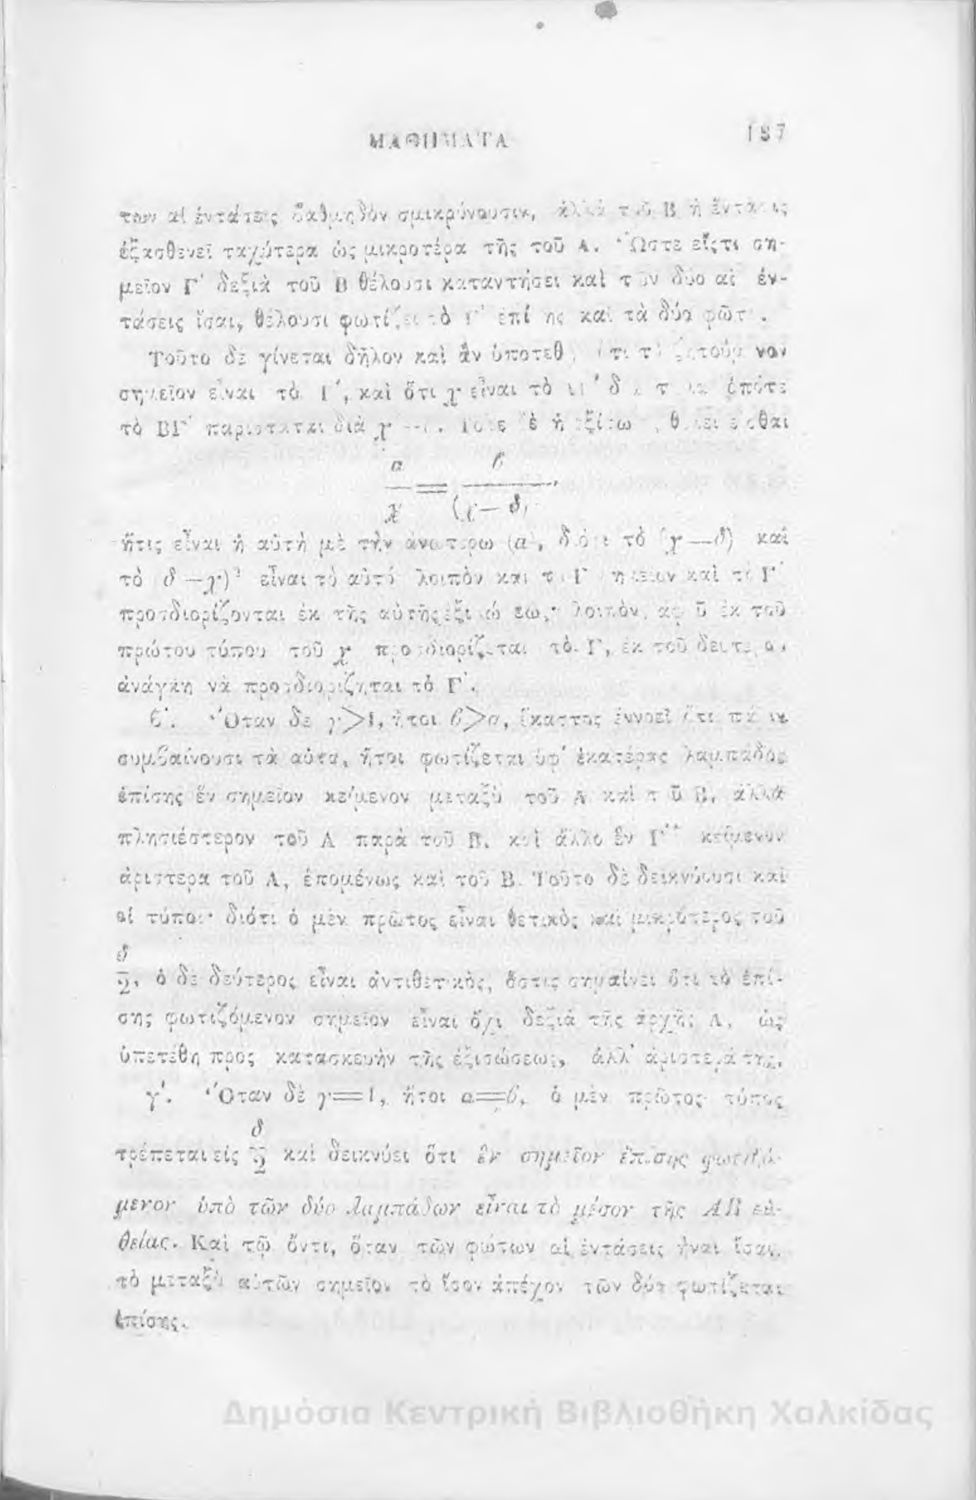 ΜΑΘΗΜΑΤΑ 187
των αἱ ἐντάσεις βαθμηδὸν σμικρύνουσιν, ἀλλὰ τοῦ Β ἡ ἔντασις
ἐξασθενεῖ ταχύτερα ὡς μικροτέρα τῆς τοῦ Α. Ὥστε εἴςτι ση-
μεῖον Γ' δεξιὰ τοῦ Β θέλουσι καταντήσει καὶ τῶν δύο αἱ ἐν-
τάσεις ἴσαι, θέλουσι φωτίζει τὸ Γ' ἐπίσης καὶ τὰ δύο φῶτα.
Τοῦτο δὲ γίνεται δῆλον καὶ ἂν ὑποτεθῇ ὅτι τὸ ζητούμενον
σημεῖον εἶναι τὸ Γ', καὶ ὅτι χ εἶναι τὸ ὁπότε
τὸ ΒΓ' παρίσταται διὰ χ—δ. Τότε δὲ ἡ ἐξίσωσις θέλει εἶσθαι
α β
— = ———,
χ (χ—δ)
ἥτις εἶναι ἡ αὐτὴ μὲ τὴν ἀνωτέρω (α), διότι τὸ (χ—δ) καὶ
τὸ (δ—χ)² εἶναι τὸ αὐτό λοιπὸν καὶ τὸ Γ σημεῖον καὶ τὸ Γ'
προσδιορίζονται ἐκ τῆς αὐτῆς ἐξισώσεως· λοιπὸν, ἀφ' οὗ ἐκ τοῦ
πρώτου τύπου τοῦ χ προσδιορίζεται τὸ Γ, ἐκ τοῦ δευτέρου
ἀνάγκη νὰ προσδιορίζηται τὸ Γ'.
β'. Ὅταν δὲ γ>1, ἤτοι β>α, ἕκαστος ἐννοεῖ ὅτι πάλιν
συμβαίνουσι τὰ αὐτὰ, ἤτοι φωτίζεται ὑφ' ἑκατέρας λαμπάδος
ἐπίσης ἓν σημεῖον κείμενον μεταξὺ τοῦ Α καὶ τοῦ Β, ἀλλὰ
πλησιέστερον τοῦ Α παρὰ τοῦ Β, καὶ ἄλλο ἓν Γ'' κείμενον
ἀριστερὰ τοῦ Α, ἑπομένως καὶ τοῦ Β. Τοῦτο δὲ δεικνύουσι καὶ
οἱ τύποι· διότι ὁ μὲν πρῶτος εἶναι θετικὸς καὶ μικρότερος τοῦ
δ
2, ὁ δὲ δεύτερος εἶναι ἀντιθετικὸς, ὅστις σημαίνει ὅτι τὸ ἐπί-
σης φωτιζόμενον σημεῖον εἶναι ὄχι δεξιὰ τῆς ἀρχῆς Α, ὡς
ὑπετέθη προς κατασκευὴν τῆς ἐξισώσεως, ἀλλ' ἀριστερά της.
γ'. Ὅταν δὲ γ=1, ἤτοι α=β, ὁ μὲν πρῶτος τύπος
δ
τρέπεται εἰς 2 καὶ δεικνύει ὅτι ἓν σημεῖον ἐπίσης φωτιζό-
μενον ὑπὸ τῶν δύο λαμπάδων εἶναι τὸ μέσον τῆς ΑΒ εὐ-
θείας. Καὶ τῷ ὄντι, ὅταν τῶν φώτων αἱ ἐντάσεις ἦναι ἴσαι,
τὸ μεταξὺ αὐτῶν σημεῖον τὸ ἴσον ἀπέχον τῶν δύο φωτίζεται
ἐπίσης.
Δημόσια Κεντρική Βιβλιοθήκη Χαλκίδας